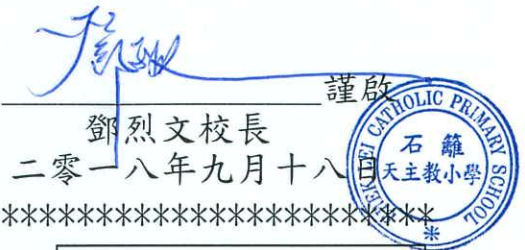 謹啟
鄧烈文校長
二零一八年九月十八日
CATHOLIC PRIMARY SCHOOL
石籬
天主教小學
*
**************************